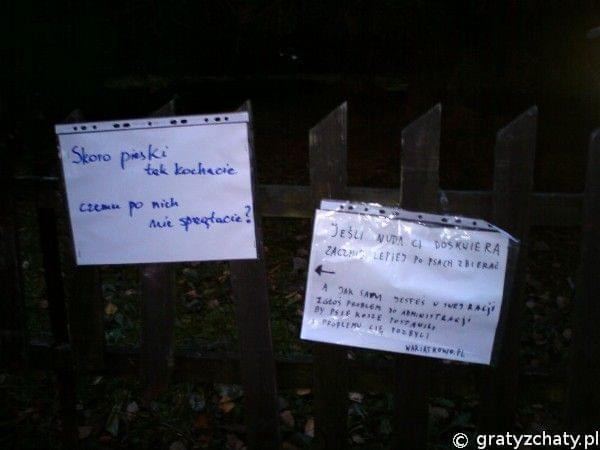 Skoro pieski
tak kochacie
czemu po nich
nie sprzątacie?
JEŚLI NUDA CI DOSKWIERA
ZACZNIJ LEPIEJ PO PSACH ZBIERAĆ
←
A JAK SAM JESTEŚ W SWEJ RACJI
ZGŁOŚ PROBLEM DO ADMINISTRACJI
BY PSIE KOSZE POSTAWILI
I PROBLEMU SIĘ POZBYLI
WARIATKOWO.PL
© gratyzchaty.pl